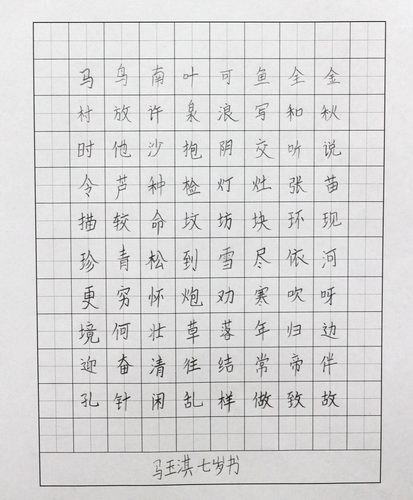 马 鸟 南 叶 可 鱼 全 金
村 放 许 泉 浪 写 和 秋
时 他 沙 抱 阴 交 听 说
令 芦 种 检 灯 灶 张 苗
描 较 命 坟 坊 块 环 现
珍 青 松 到 雪 尽 依 河
更 穷 怀 炮 劝 寒 吹 呀
境 何 壮 草 落 年 归 边
迎 奋 清 往 结 常 帝 伴
孔 针 闲 乱 样 做 致 故
马玉淇 七岁书